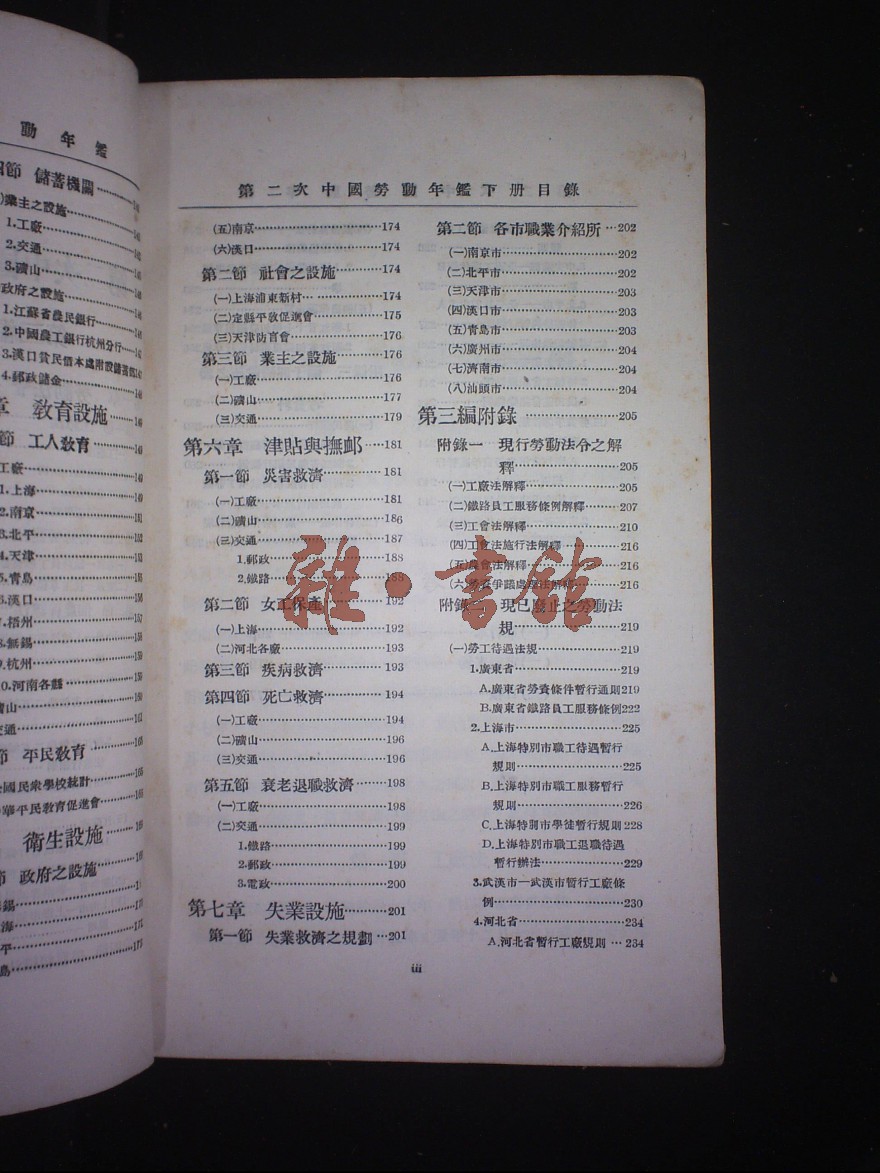 動年鑑
四節 儲蓄機關
業主之設施
1.工廠
2.交通
3.礦山
政府之設施
1.江蘇省農民銀行
2.中國農工銀行杭州分行
3.漢口貧民借本處附設儲蓄
4.郵政儲金
章 敎育設施
節 工人敎育
工廠
1.上海
2.南京
3.北平
4.天津
5.靑島
6.漢口
梧州
8.無錫
9.杭州
10.河南各縣
礦山
交通
節 平民敎育
全國民衆學校統計
華平民敎育促進會
衛生設施
節 政府之設施
第二次中國勞動年鑑下册目錄
(五)南京……174
(六)漢口……174
第二節 社會之設施……174
(一)上海浦東新村……174
(二)定縣平敎促進會……175
(三)天津防盲會……176
第三節 業主之設施……176
(一)工廠……176
(二)礦山……177
(三)交通……179
第六章 津貼與撫邺……181
第一節 災害救濟……181
(一)工廠……181
(二)礦山……186
(三)交通……187
1.郵政……188
2.鐵路……188
第二節 女工保產……192
(一)上海……192
(二)河北各廠……193
第三節 疾病救濟……193
第四節 死亡救濟……194
(一)工廠……194
(二)礦山……196
(三)交通……196
第五節 衰老退職救濟……198
(一)工廠……198
(二)交通……199
1.鐵路……199
2.郵政……199
3.電政……200
第七章 失業設施……201
第一節 失業救濟之規劃…201
第二節 各市職業介紹所…202
(一)南京市……202
(二)北平市……202
(三)天津市……203
(四)漢口市……203
(五)靑島市……203
(六)廣州市……204
(七)濟南市……204
(八)汕頭市……204
第三編附錄……205
附錄一 現行勞動法令之解
釋……205
(一)工廠法解釋……205
(二)鐵路員工服務條例解釋……207
(三)工會法解釋……210
(四)工會法施行法解釋……216
(五)農會法解釋……216
(六)勞資爭議處理法解釋……216
附錄二 現已廢止之勞動法
規……219
(一)勞工待遇法規……219
1.廣東省……219
A.廣東省勞資條件暫行通則219
B.廣東省鐵路員工服務條例222
2.上海市……225
A.上海特別市職工待遇暫行
規則……225
B.上海特別市職工服務暫行
規則……226
C.上海特別市學徒暫行規則228
D.上海特別市職工退職待遇
暫行辦法……229
3.武漢市—武漢市暫行工廠條
例……230
4.河北省……234
A.河北省暫行工廠規則…234
iii
雜·書館